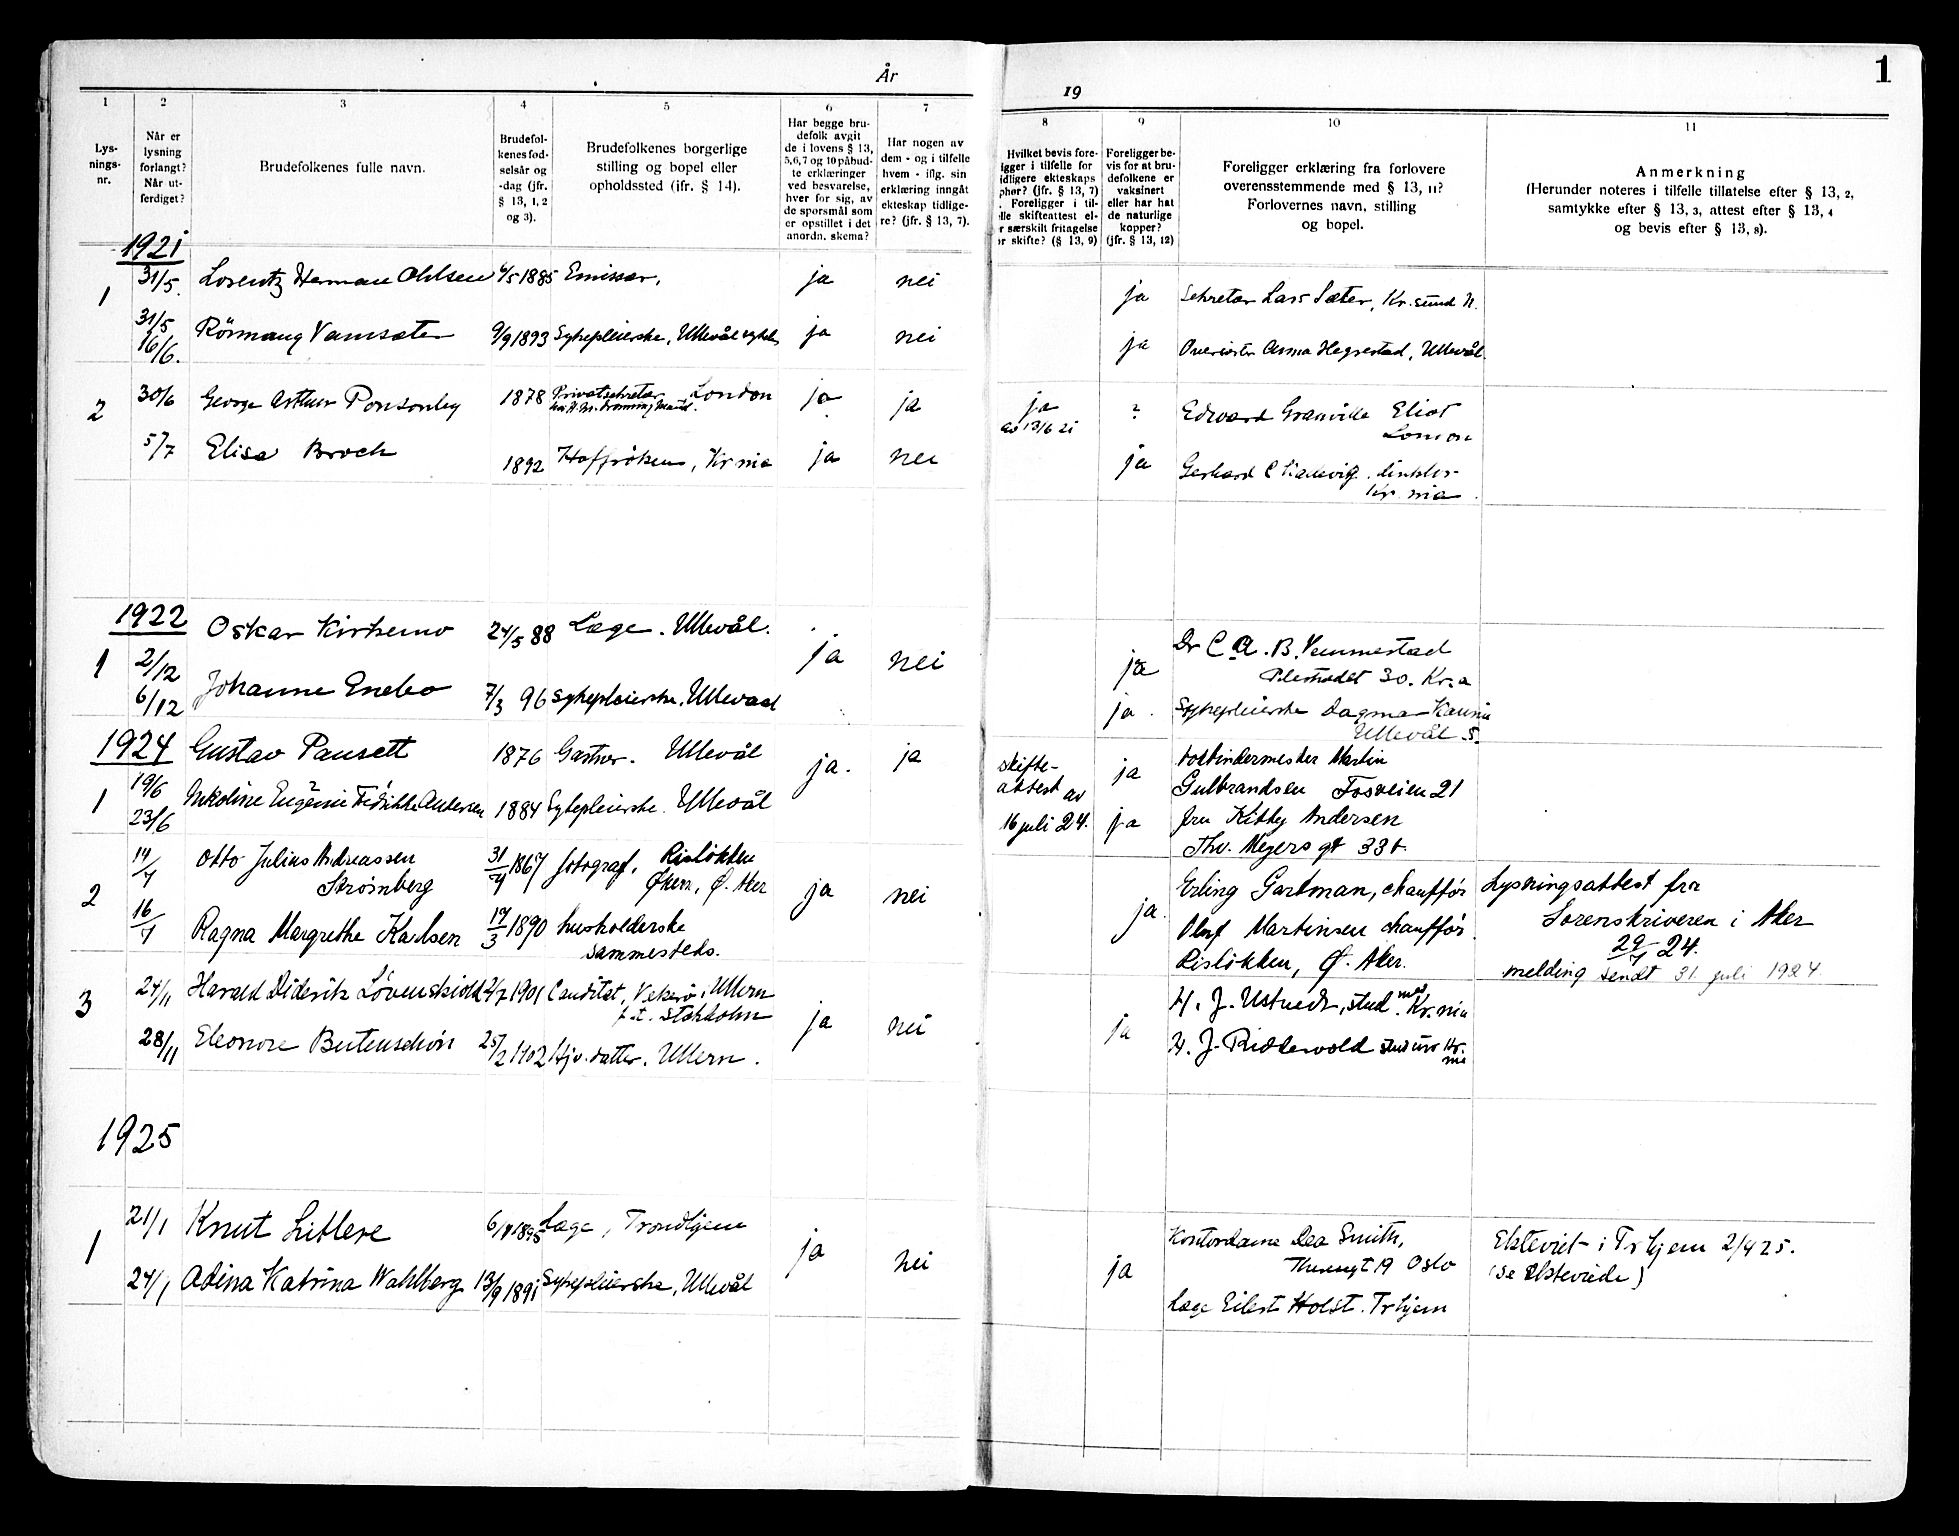 År
19
1
1
2
3
4
5
6
7
8
9
10
11
Lys-
nings-
nr.
Når er
lysning
forlangt?
Når ut-
ferdiget?
Brudefolkenes fulle navn.
Brudefol-
kenes fød-
selsår og
-dag (jfr.
§ 13, 1, 2
og 3).
Brudefolkenes borgerlige
stilling og bopel eller
opholdssted (ifr. § 14).
Har begge bru-
defolk avgit
de i lovens § 13,
5,6,7 og 10 påbud-
te erklæringer
ved besvarelse,
hver for sig, av
de spørsmål som
er opstillet i det
anordn. skema?
Har nogen av
dem - og i tilfelle
hvem - iflg. sin
erklæring inngått
ekteskap tidlige-
re? (jfr. § 13, 7).
Hvilket bevis fore-
igger i tilfelle for
idligere ekteskaps
phør? (jfr. § 13, 7)
. Foreligger i til-
elle skifteattest el-
r særskilt fritagelse
or skifte? (§ 13, 9)
Foreligger be-
vis for at bru-
defolkene er
vaksinert
eller har hat
de naturlige
kopper?
(jfr. § 13, 12)
Foreligger erklæring fra forlovere
overensstemmende med § 13, 11?
Forlovernes navn, stilling
og bopel.
Anmerkning
(Herunder noteres i tilfelle tillatelse efter § 13, 2,
samtykke efter § 13, 3, attest efter § 13, 4
og bevis efter § 13, 8).
1921
1 31/5. Lorentz Herman Ohlsen 4/5 1885 Emissær, ja nei ja Sekretær Lars Sæter, Kr.sund N.
31/5 16/6. Rönnaug Vamsæter 9/9 1893 Sykepleierske, Ullevål sykeh. ja nei ja Oversøster Anna Hegrestad, Ullevål.
2 30/6 George Arthur Ponsonby 1878 Privatsekretær London ja ja ja ? Edward Granville Eliot
hos H.M. Dronning Maud. av 13/6 21 London
5/7 Elisa Broch 1892 Hoffrøken, Kr.nia ja nei ja Gerhard C
Kr.nia
1922
Oskar Kirkemo 24/5 88 Læge. Ullevål.
1 2/12 ja nei ja Dr C.A.B. Vemmestad
Pilestrædet 30. Kr.a
6/12 Johanne Enebo 7/3 96 Sykepleierske. Ullevaal ja. Sykepleierske Dagmar
Ullevål S.
1924
Gustav Pausett 1876 Gartner. Ullevål ja. ja skifte-
attest av
16 juli 24. ja Martin
Gulbrandsen Fossveien 21
1 19/6
23/6 Nikoline Eugénie Fredrikke Andersen 1884 Sykepleierske. Ullevål ja Fru Kitty Andersen
Thv. Meyers gt 33 b.
2 14/7 Otto Julius Andreassen
Strømberg 31/7 1867 fotograf, Risløkken
Økern, Ø. Aker ja nei ja. Erling Gartman, chauffør
Olaf Martinsen chauffør.
Risløkken, Ø. Aker.
Lysningsattest fra
Sorenskriveren i Aker
29/7 24.
melding sendt 31. juli 1924.
16/7 Ragna Margrethe Karlsen 17/3 1890 husholderske
sammesteds.
3 24/11 Harald Diderik Lövenskiold 24/7 1901 Candidat, Vekerö, Ullern
p.t. Stockholm ja nei ja H. J. Ustvedt, stud. med. Kr.nia
28/11 Eleonore Butenschön 25/2 1902 Hjv. datter. Ullern. H. J. Ridderwold stud iur Kr.
nia
1925
1 21/1 Knut Littere 6/4 1895 Læge, Trondhjem ja nei ja Kontordame Dea Smith,
Theresegt 19 Oslo
Ekteviet i Trhjem 2/4 25.
(se Ekteviede)
24/1 Adina Katrina Wahlberg 13/9 1891 Sykepleierske, Ullevål
Læge Eilert Holst. Trhjem